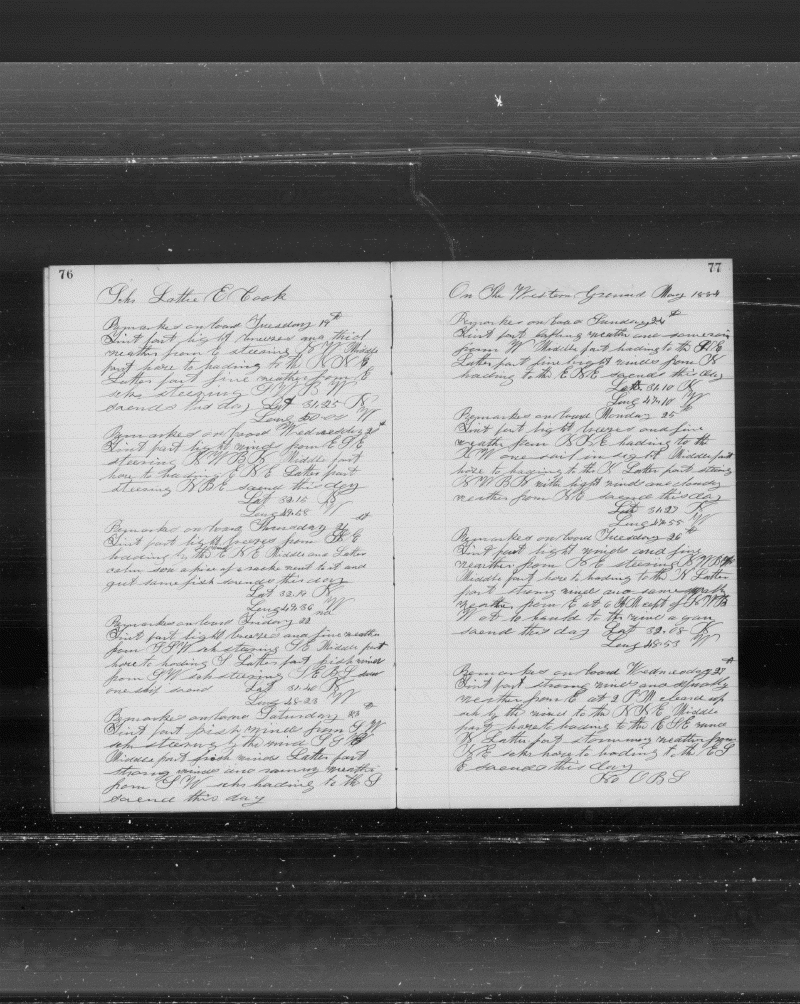 76
Schr Lottie E Cook
Remarks on board Tuesday 19th
First part light breezes and thick
weather from E steering N W Middle
part hove to heading to the N N E
Latter part fine weather from E
schr steering N W B W
So ends this day Lat 31-25 N
Long 50-00 W
Remarks on board Wednesday 20th
First part light winds from E S E
steering N W B N Middle part
hove to heading E N E Latter part
steering N B E so ends this day
Lat 32-15 N
Long 49-58 W
Remarks on board Thursday 21st
First part light breezes from S E
heading to the E N E Middle and Latter
calm saw a piece of a rack went to it and
got some fish so ends this day
Lat 32-14 N
Long 49-36 W
Remarks on board Friday 22nd
First part light breezes and fine weather
from S S W schr steering S E Middle part
hove to heading S Latter part fresh winds
from S W schr steering S E B S saw
one ship so end Lat 31-40 N
Long 48-23 W
Remarks on board Saturday 23rd
First part fresh winds from S W
schr steering by the wind
Middle part fresh winds Latter part
strong winds and rainny weather
from S W schr heading to the S
So end this day
77
On The Western Ground May 1884
Remarks on board Sunday 24th
First part weather and some rain
from W Middle part heading to the
Latter part fine light winds from N
heading to the E N E so ends this day
Lat 31-10 N
Long 47-10 W
Remarks on board Monday 25th
First part light breezes and fine
weather from N N E heading to the
N W one sail in sight Middle part
hove to heading to the N Latter part steering
N W B N with light winds and cloudy
weather from N E so end this day
Lat 31-27 N
Long 47-55 W
Remarks on board Tuesday 26th
First part light winds and fine
weather from N E steering
Middle part hove to heading to the N Latter
part strong winds and some
weather from E at 6 P M kept of N W B
W at 10 hauld to the wind again
so end this day Lat 32-08 N
Long 48-53 W
Remarks on board Wednesday 27th
First part strong winds and squally
weather from E at 2 P M cleard up
schr by the wind to the N N E Middle
part hove to heading to the E S E wind
N Latter part stormy weather from
N E schr hove to heading to the E S
E so ends this day
No O B S